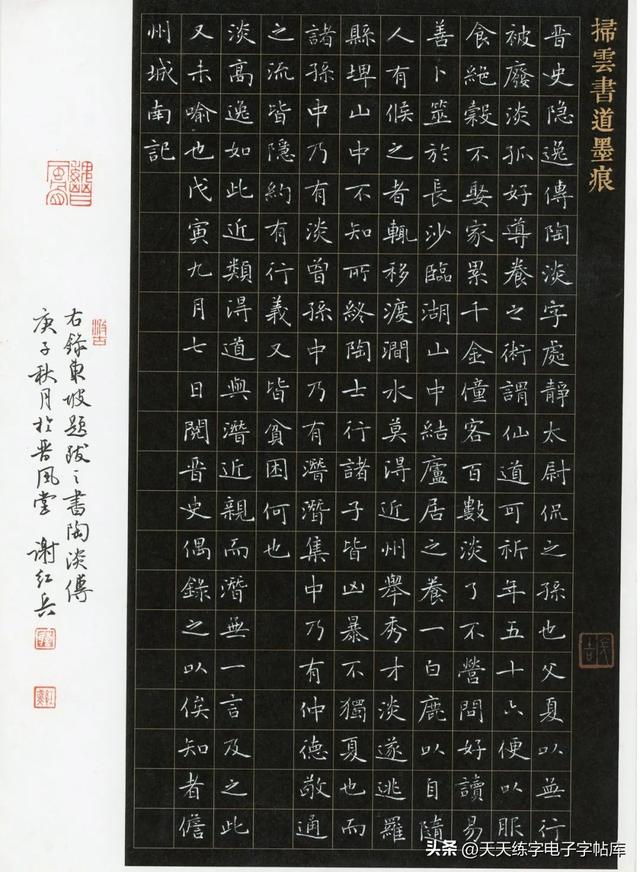 掃雲書道墨痕
晉史隐逸傳陶淡字處靜太尉侃之孫也父夏以無行
被廢淡孤好導養之術謂仙道可祈年五十六便以服
食絕穀不娶家累千金僮客百數淡了不營問好讀易
善卜筮於長沙臨湖山中結廬居之養一白鹿以自隨
人有候之者輒移渡澗水莫得近州舉秀才淡遂逃羅
縣埤山中不知所終陶士行諸子皆凶暴不獨夏也而
諸孫中乃有淡曾孫中乃有潛潛集中乃有仲德敬通
之流皆隱約有行義又皆貧困何也
淡高逸如此近類得道與潛近親而潛無一言及之此
又未喻也戊寅九月七日閱晉史偶錄之以俟知者儋
州城南記
右錄東坡題跋之書陶淡傳
庚子秋月於晉風堂 谢红兵
头条 @天天练字电子字帖库